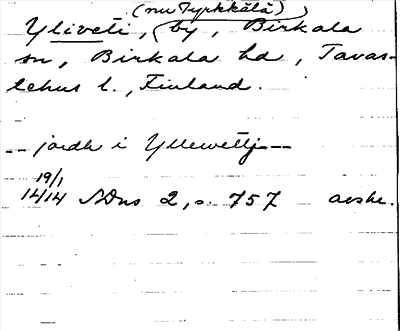 (nu Tyrkkälä)
Yliveti, by, Birkala
sn, Birkala hd, Tavas-
tehus l., Finland.
-- jordh i Yllewettj --
19/1
1414 SDns 2, s. 757 avskr.